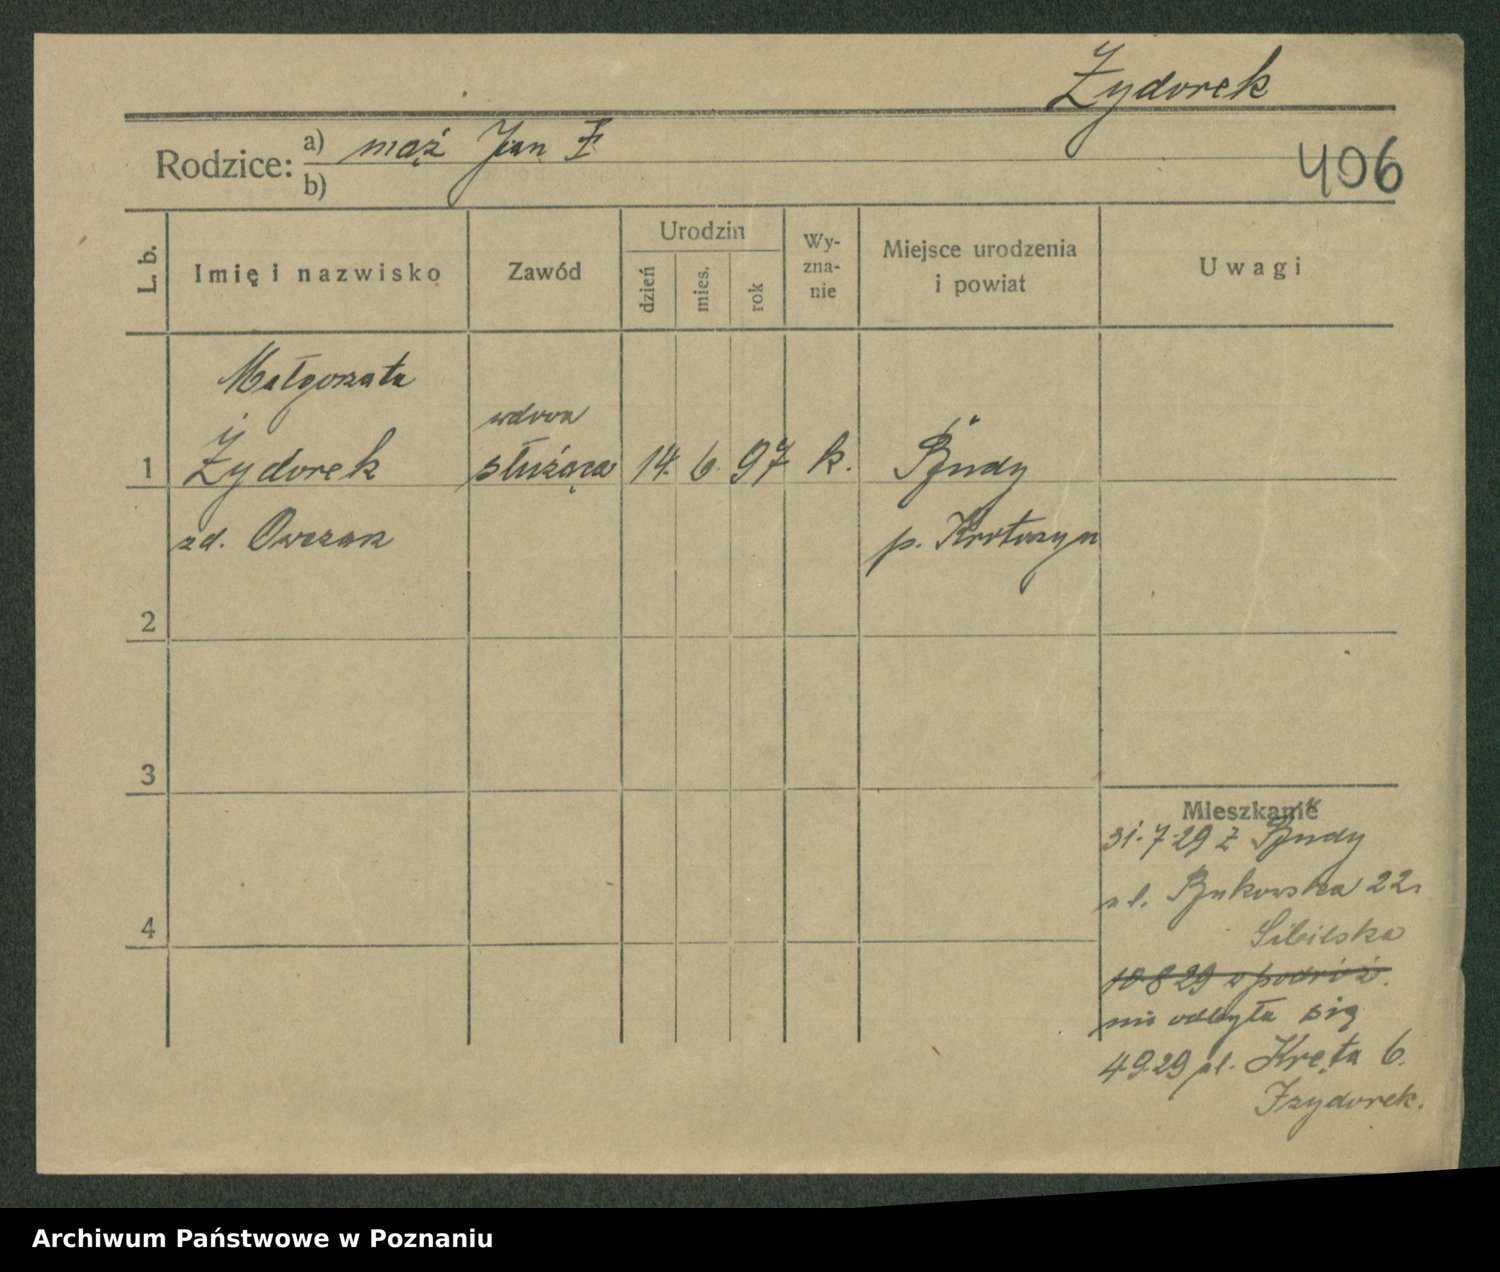 Żydorek
Rodzice: a) mąż Jan Ż
b)
406
L. b.
Imię i nazwisko
Zawód
Urodzin
dzień
mies.
rok
Wy-
zna-
nie
Miejsce urodzenia
i powiat
Uwagi
Małgorzata
wdowa
1 Żydorek służąca 14. 6. 97 k. Budy
zd. Owczarz p. Krotoszyn
2
3
4
Mieszkanie
31.7.29 z Budy
ul. Bukowska 22
10.8.29 w podróż.
nie odbyła się
4.9.29 ul. Kręta 6.
Izydorek.
Archiwum Państwowe w Poznaniu